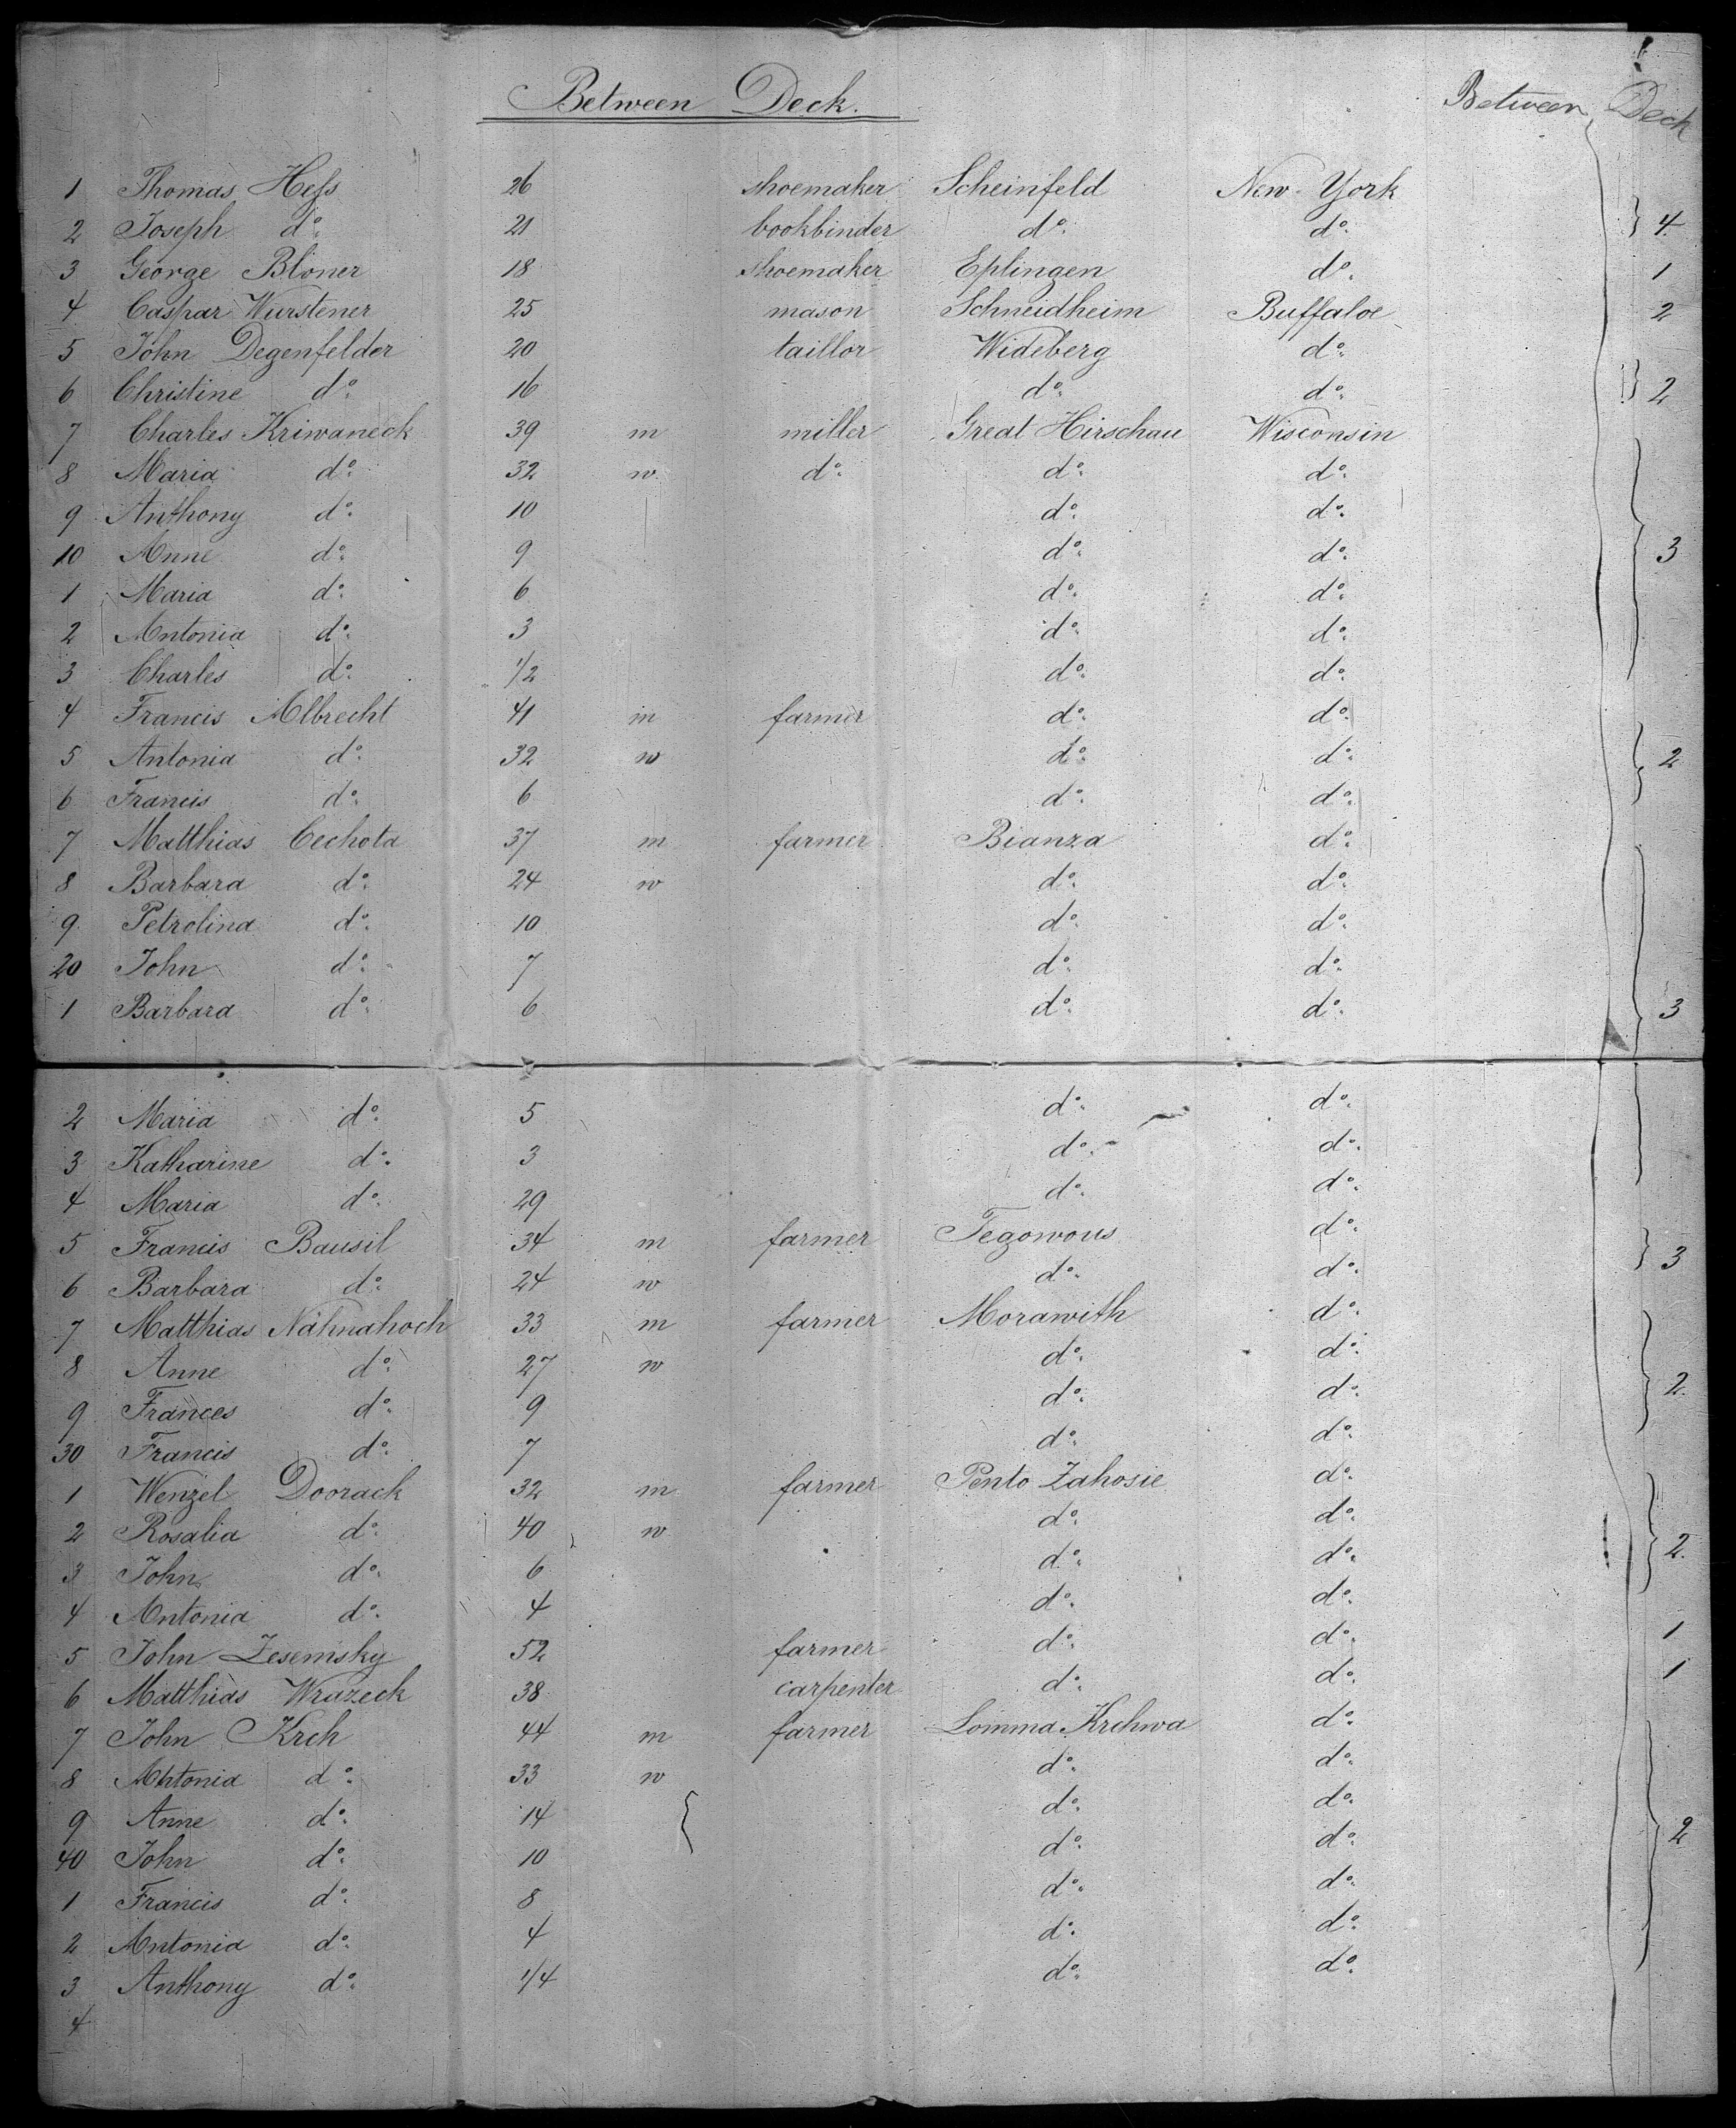 Between Deck. Between Deck
1 Thomas Hess 26 shoemaker Scheinfeld New-York
2 Joseph do 21 bookbinder do do } 4.
3 George Bloner 18 shoemaker Eplingen do 1
4 Caspar Wurstener 25 mason Schneidheim Buffaloe 2
5 John Degenfelder 20 taillor Wideberg do
6 Christine do 16 do do } 2
7 Charles Kriwaneck 39 m miller Great Hirschau Wisconsin
8 Maria do 32 w do do do
9 Anthony do 10 do do
10 Anne do 9 do do } 3
1 Maria do 6 do do
2 Antonia do 3 do do
3 Charles do 1/2 do do
4 Francis Albrecht 41 m farmer do do
5 Antonia do 32 w do do } 2
6 Francis do 6 do do
7 Matthias Cechota 37 m farmer Bianza do
8 Barbara do 24 w do do
9 Petrolina do 10 do do
20 John do 7 do do
1 Barbara do 6 do do } 3
2 Maria do 5 do do
3 Katharine do 3 do do
4 Maria do 29 do do
5 Francis Bausil 34 m farmer Tegowous do } 3
6 Barbara do 24 w do do
7 Matthias Náhnahoch 33 m farmer Morawith do
8 Anne do 27 w do do } 2.
9 Frances do 9 do do
30 Francis do 7 do do
1 Wenzel Doorack 32 m farmer Pento Zahosie do
2 Rosalia do 40 w do do } 2.
3 John do 6 do do
4 Antonia do 4 do do
5 John Zesemsky 52 farmer do do 1
6 Matthias Wrazeck 38 carpenter do do 1
7 John Krch 44 m farmer Lomma Krchwa do
8 Antonia do 33 w do do
9 Anne do 14 { do do } 2
40 John do 10 do do
1 Francis do 8 do do
2 Antonia do 4 do do
3 Anthony do 1/4 do do
4